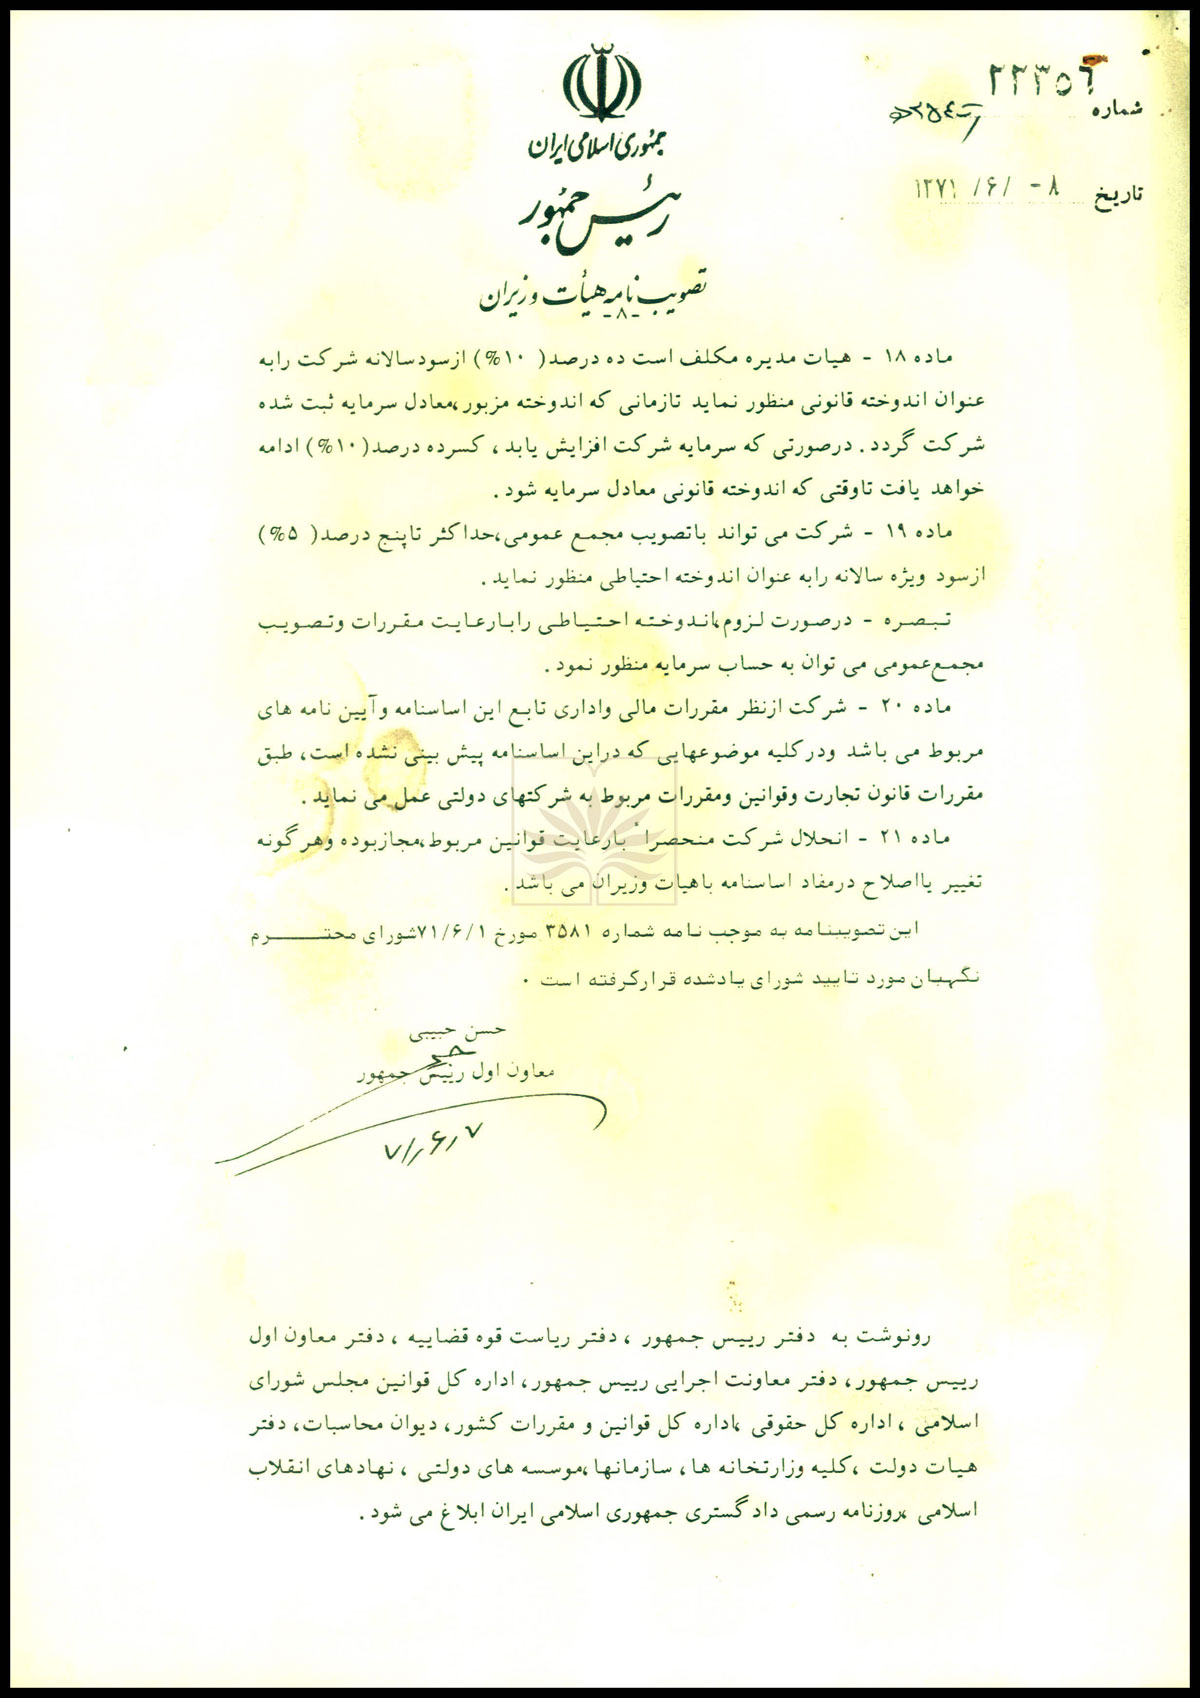 ۲۲۳۵۶
شماره
تاریخ ۱۳۷۱/۶/-۸
جمهوری اسلامی ایران
رئیس جمهور
تصویب نامه هیأت وزیران
-۸-
ماده ۱۸ - هیات مدیره مکلف است ده درصد (۱۰%) از سود سالانه شرکت را به
عنوان اندوخته قانونی منظور نماید تا زمانی که اندوخته مزبور، معادل سرمایه ثبت شده
شرکت گردد. درصورتی که سرمایه شرکت افزایش یابد، کسر ده درصد (۱۰%) ادامه
خواهد یافت تا وقتی که اندوخته قانونی معادل سرمایه شود.
ماده ۱۹ - شرکت می تواند با تصویب مجمع عمومی، حداکثر تا پنج درصد (۵%)
از سود ویژه سالانه را به عنوان اندوخته احتیاطی منظور نماید.
تبصره - درصورت لزوم، اندوخته احتیاطی را با رعایت مقررات و تصویب
مجمع عمومی می توان به حساب سرمایه منظور نمود.
ماده ۲۰ - شرکت از نظر مقررات مالی و اداری تابع این اساسنامه و آیین نامه های
مربوط می باشد و در کلیه موضوعهایی که در این اساسنامه پیش بینی نشده است، طبق
مقررات قانون تجارت و قوانین و مقررات مربوط به شرکتهای دولتی عمل می نماید.
ماده ۲۱ - انحلال شرکت منحصراً با رعایت قوانین مربوط، مجاز بوده و هر گونه
تغییر یا اصلاح در مفاد اساسنامه با هیات وزیران می باشد.
این تصویبنامه به موجب نامه شماره ۳۵۸۱ مورخ ۷۱/۶/۱ شورای محترم
نگهبان مورد تایید شورای یادشده قرار گرفته است.
حسن حبیبی
معاون اول رییس جمهور
۷۱٫۶٫۷
رونوشت به دفتر رییس جمهور، دفتر ریاست قوه قضاییه، دفتر معاون اول
رییس جمهور، دفتر معاونت اجرایی رییس جمهور، اداره کل قوانین مجلس شورای
اسلامی، اداره کل حقوقی، اداره کل قوانین و مقررات کشور، دیوان محاسبات، دفتر
هیات دولت، کلیه وزارتخانه ها، سازمانها، موسسه های دولتی، نهادهای انقلاب
اسلامی، روزنامه رسمی دادگستری جمهوری اسلامی ایران ابلاغ می شود.